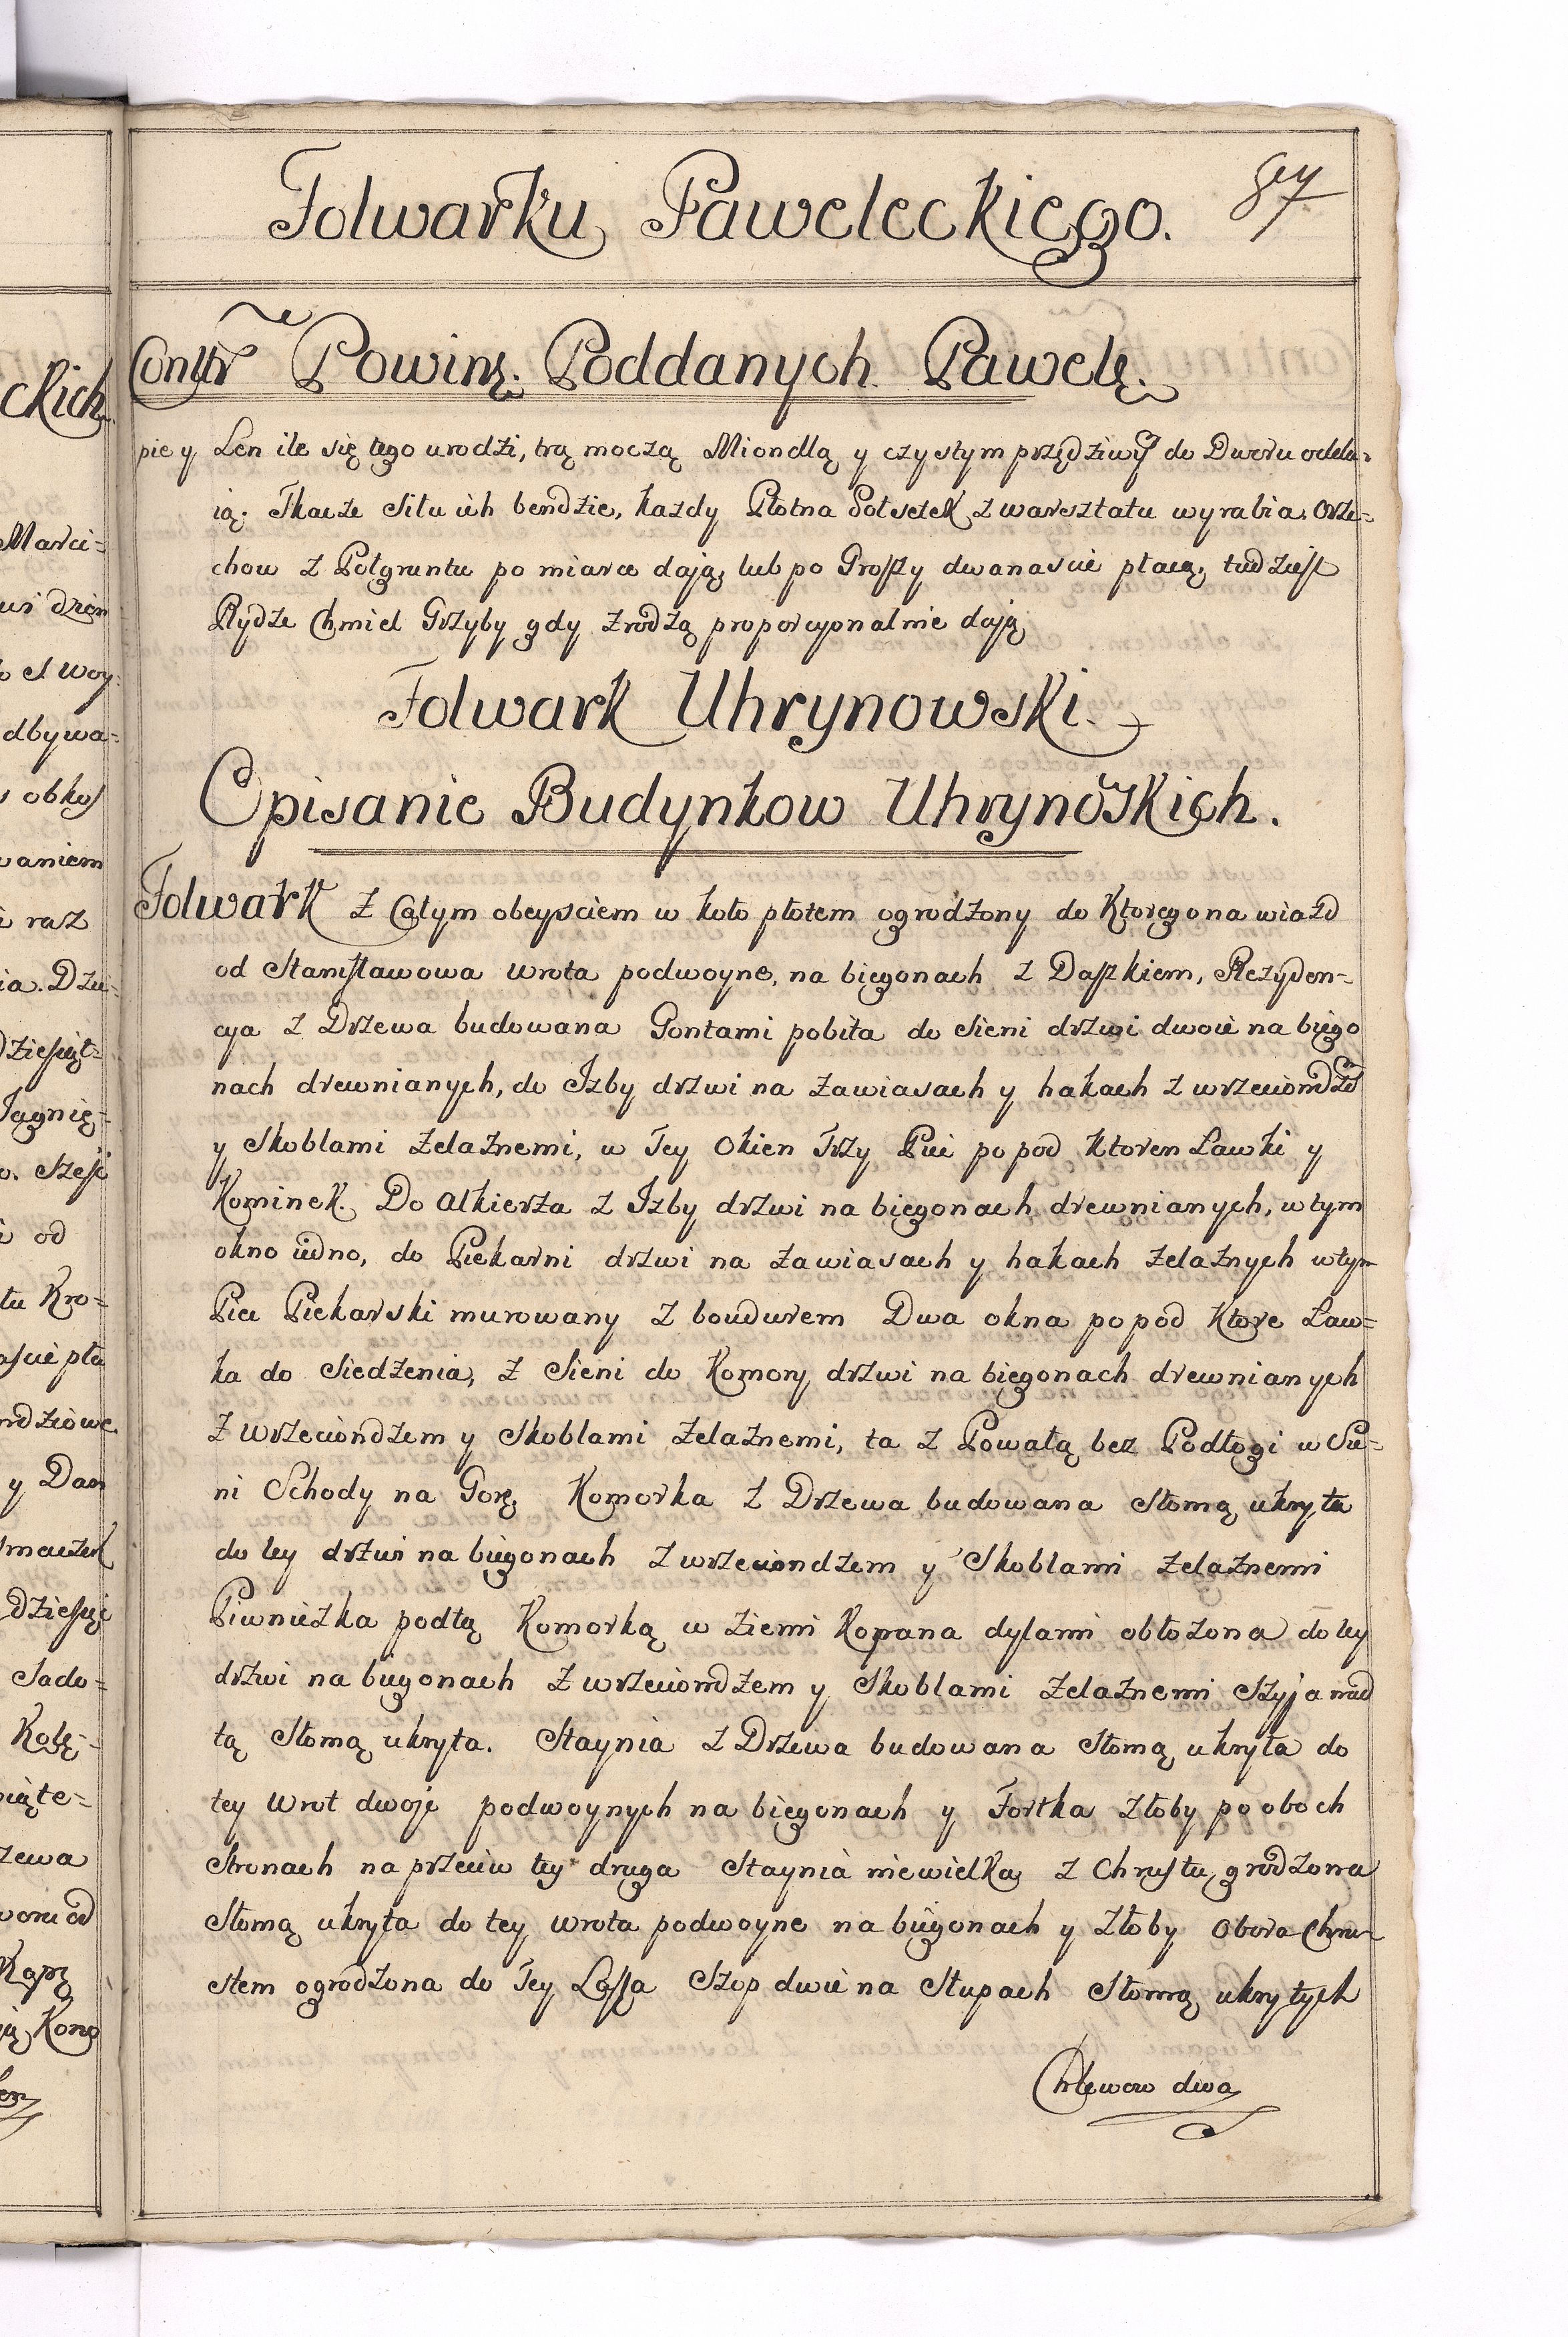 Folwarku Paweleckiego.
87
Powinę. Poddanych Pawelę.
pie y Len ile się tego urodzi, trą moczą Miondlą y czystym przędziwem do Dworu odda-
ią. Tkacze Silu ich bendzie, kazdy Płotna Połsetek z warsztatu wyrabia. Orze-
chow z Połgruntu po miarce dają, lub po Groszy dwanascie płacą, tudziesz
Rydze Chmiel Grzyby gdy zrodzą proporcyonalnie dają
Folwark Uhrynowski.
Opisanie Budynkow Uhrynoskich.
Folwark z Całym obeysciem w koło płotem ogrodzony do Ktorego na wiazd
od Stanisławowa wrota podwoyne, na biegonach z Daszkiem, Rezyden-
cya z Drzewa budowana Gontami pobita do Sieni drzwi dwoie na biego
nach drewnianych, do Izby drzwi na zawiasach y hakach z wrzeciondzem
y Skoblami zelaznemi, w Tey Okien Trzy Piec popod ktorem Lawki y
Kominek. Do alkierza z Izby drzwi na biegonach drewnianych, w tym
okno iedno, do Piekarni drzwi na zawiasach y hakach zelaznych w tym
Piec Piekarski murowany z boudurem Dwa okna popod Ktore Law-
ka do Siedzenia, z Sieni do Komory drzwi na biegonach drewnianych
z wrzeciondzem y Skoblami zelaznemi, ta z Powałą bez Podłogi w Sie-
ni Schody na Gorę Komorka z Drzewa budowana Słomą ukryta
do tey drzwi na biegonach z wrzeciondzem y Skoblami zelaznemi
Piwniczka pod tą Komorką w ziemi Kopana dylami obłozona do tey
drzwi na biegonach z wrzeciondzem y Skoblami zelaznemi Szyja nad
tą Słomą ukryta. Staynia z Drzewa budowana Słomą ukryta do
tey wrot dwoje podwoynych na biegonach y Fortka Złoby po oboch
Stronach na przeciw tey druga Staynia niewielka z Chrustu grodzona
Słomą ukryta do tey wrota podwoyne na biegonach y Złoby Obora Chru-
stem ogrodzona do Tey Lassa Szop dwie na Słupach Słomą ukrytych
Chlewow dwa